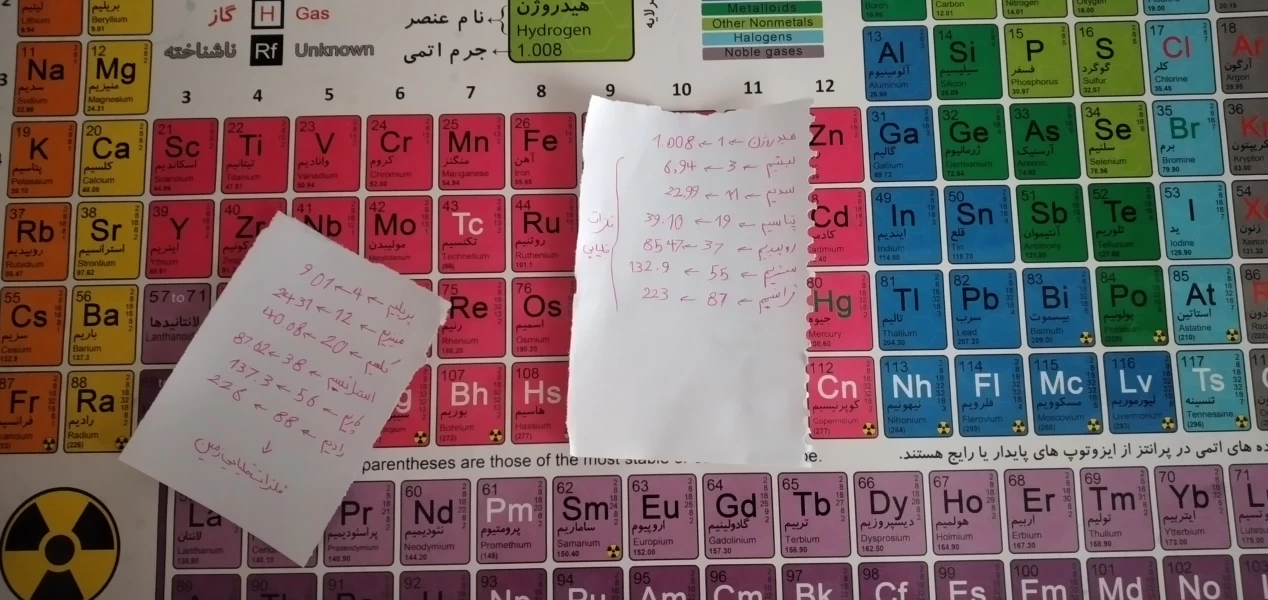 گاز H Gas
ناشناخته Rf Unknown
نام عنصر
جرم اتمی
هیدروژن
Hydrogen
1.008
Metalloids
Other Nonmetals
Halogens
Noble gases
3 4 5 6 7 8 9 10 11 12
11 Na سدیم Sodium 22.99
12 Mg منیزیم Magnesium 24.31
13 Al آلومینیوم Aluminum 26.98
14 Si سیلیسیم Silicon 28.09
15 P فسفر Phosphorus 30.97
16 S گوگرد Sulfur 32.07
17 Cl کلر Chlorine 35.45
18 Ar آرگون Argon
19 K پتاسیم Potassium 39.10
20 Ca کلسیم Calcium 40.08
21 Sc اسکاندیم Scandium 44.96
22 Ti تیتانیم Titanium 47.87
23 V وانادیم Vanadium 50.94
24 Cr کروم Chromium 52.00
25 Mn منگنز Manganese 54.94
26 Fe آهن Iron 55.85
Zn
31 Ga گالیم Gallium 69.72
32 Ge ژرمانیوم Germanium
33 As آرسنیک Arsenic 74.92
34 Se سلنیم Selenium 78.96
35 Br برم Bromine 79.90
36 Kr کریپتون Krypton
37 Rb روبیدیم Rubidium 85.47
38 Sr استرانسیم Strontium 87.62
39 Y ایتریم Yttrium 88.91
40 Zr
41 Nb
42 Mo مولیبدن Molybdenum
43 Tc تکنسیم Technetium (98)
44 Ru روتنیم Ruthenium 101.1
Cd
49 In ایندیم Indium 114.80
50 Sn قلع Tin 118.70
51 Sb آنتیموان Antimony
52 Te تلوریم Tellurium
53 I ید Iodine 126.90
54 زنون Xenon
55 Cs سزیم Cesium 132.9
56 Ba باریم Barium 137.3
57 to 71 لانتانیدها
75 Re رنیم Rhenium 186.20
76 Os اسمیم Osmium 190.20
80 Hg جیوه Mercury 200.60
81 Tl تالیم Thallium 204.30
82 Pb سرب Lead 207.20
83 Bi بیسموت Bismuth 209.00
84 Po پولونیم Polonium
85 At استاتین Astatine (210)
86
87 Fr
88 Ra رادیم Radium (226)
107 Bh بوریم Bohrium (272)
108 Hs هاسیم Hassium (277)
112 Cn کوپرنیسیم Copernicium (277)
113 Nh نیهونیم Nihonium (284)
114 Fl فلرویم Flerovium (289)
115 Mc مسکوویم Moscovium (288)
116 Lv لیورموریم Livermorium (293)
117 Ts تنسینه Tennessine (296)
118
هیدروژن ← 1 ← 1.008
لیتیم ← 3 ← 6,94
سدیم ← 11 ← 22.99
پتاسیم ← 19 ← 39.10
روبیدیم ← 37 ← 85.47
سزیم ← 55 ← 132.9
فرانسیم ← 87 ← 223
فلزات
قلیایی
بریلیم ← 4 ← 9.01
منیزیم ← 12 ← 24.31
کلسیم ← 20 ← 40.08
استرانسیم ← 38 ← 87.62
باریم ← 56 ← 137.3
رادیم ← 88 ← 226
↓
فلزات قلیایی زمین
parentheses are those of the most stable
ده های اتمی در پرانتز از ایزوتوپ های پایدار یا رایج هستند.
La لانتان Lanthanum 138.90
Pr پراسئودیمیم Praseodymium 140.90
60 Nd نئودیمیم Neodymium 144.20
61 Pm پرومتیوم Promethium (145)
62 Sm ساماریم Samarium 150.40
63 Eu اروپیوم Europium 152.00
64 Gd گادولینیم Gadolinium 157.30
65 Tb تربیم Terbium 158.90
66 Dy دیسپروزیم Dysprosium 162.50
67 Ho هولمیم Holmium 164.90
68 Er اربیم Erbium 167.30
69 Tm تولیم Thulium 168.90
70 Yb ایتربیم Ytterbium 173.00
71
93 Np
94 Pu
95 Am
96 Cm
97 Bk
98 Cf
99 Es
100 Fm
101 Md
102 No
103